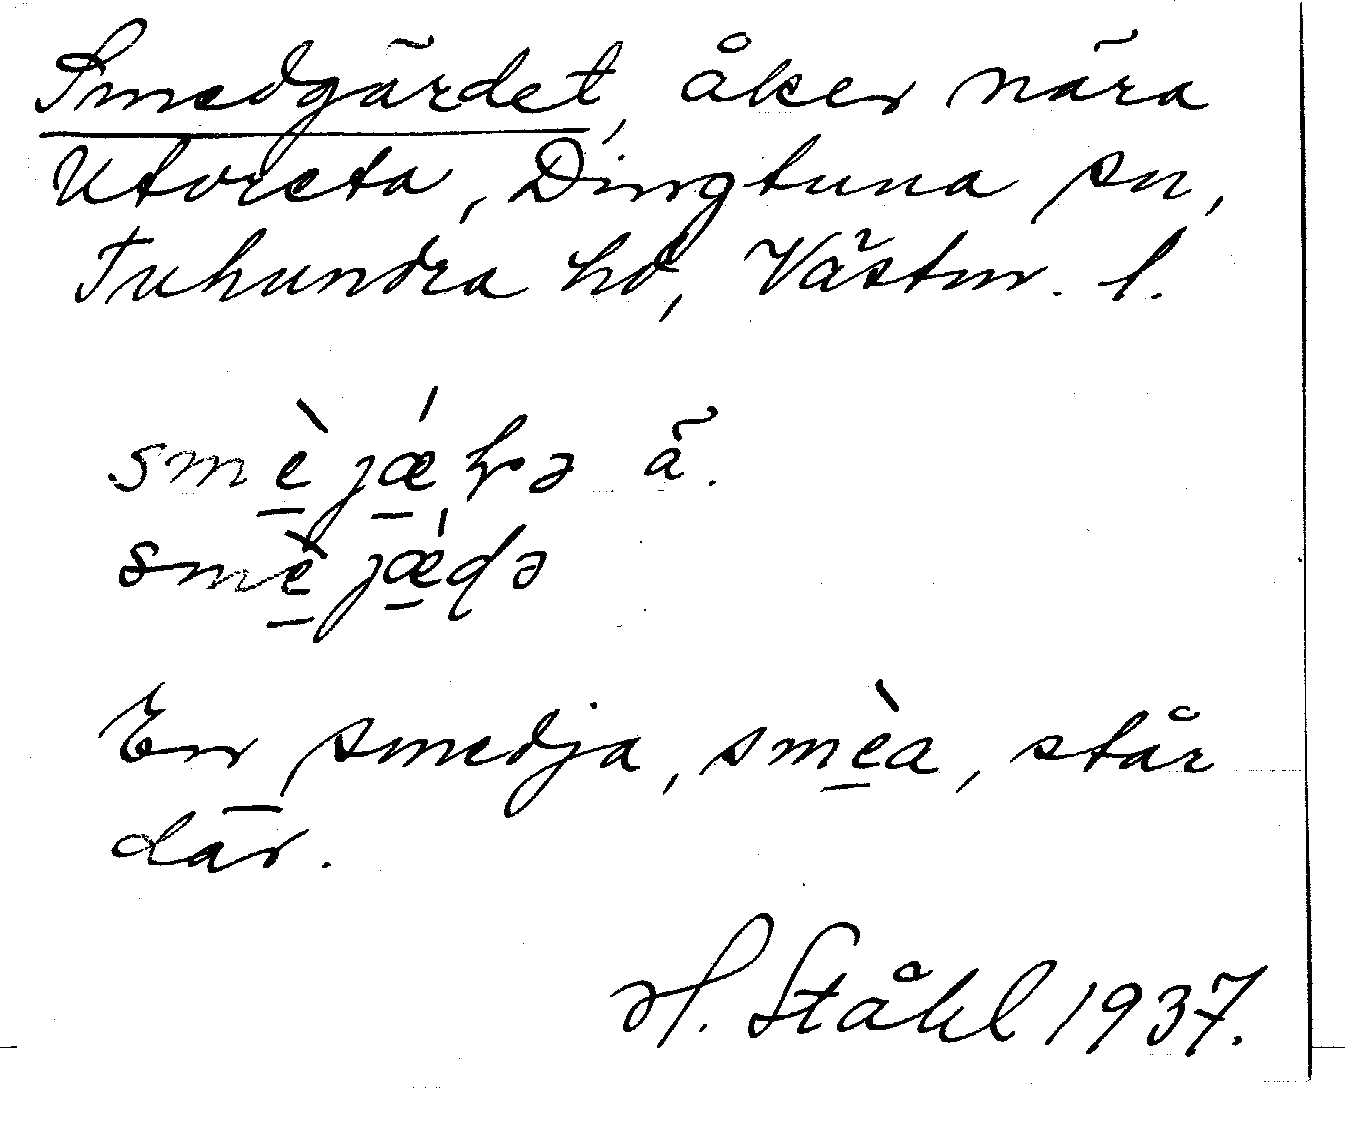 Smedgärdet, åker nära
Utoreta, Dingtuna sn,
Tuhundra hd, Västm. l.
ä.
En smedja, smèa, står
där.
H. Ståhl 1937.